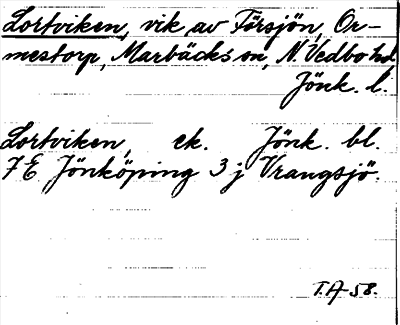 Lortviken, vik av Försjön, Or-
mestorp, Marbäcks sn, N. Vedbo hd,
Jönk. l.
Lortviken, ek. Jönk. bl.
7 E. Jönköping 3 j Vrangsjö.
T.A-58.